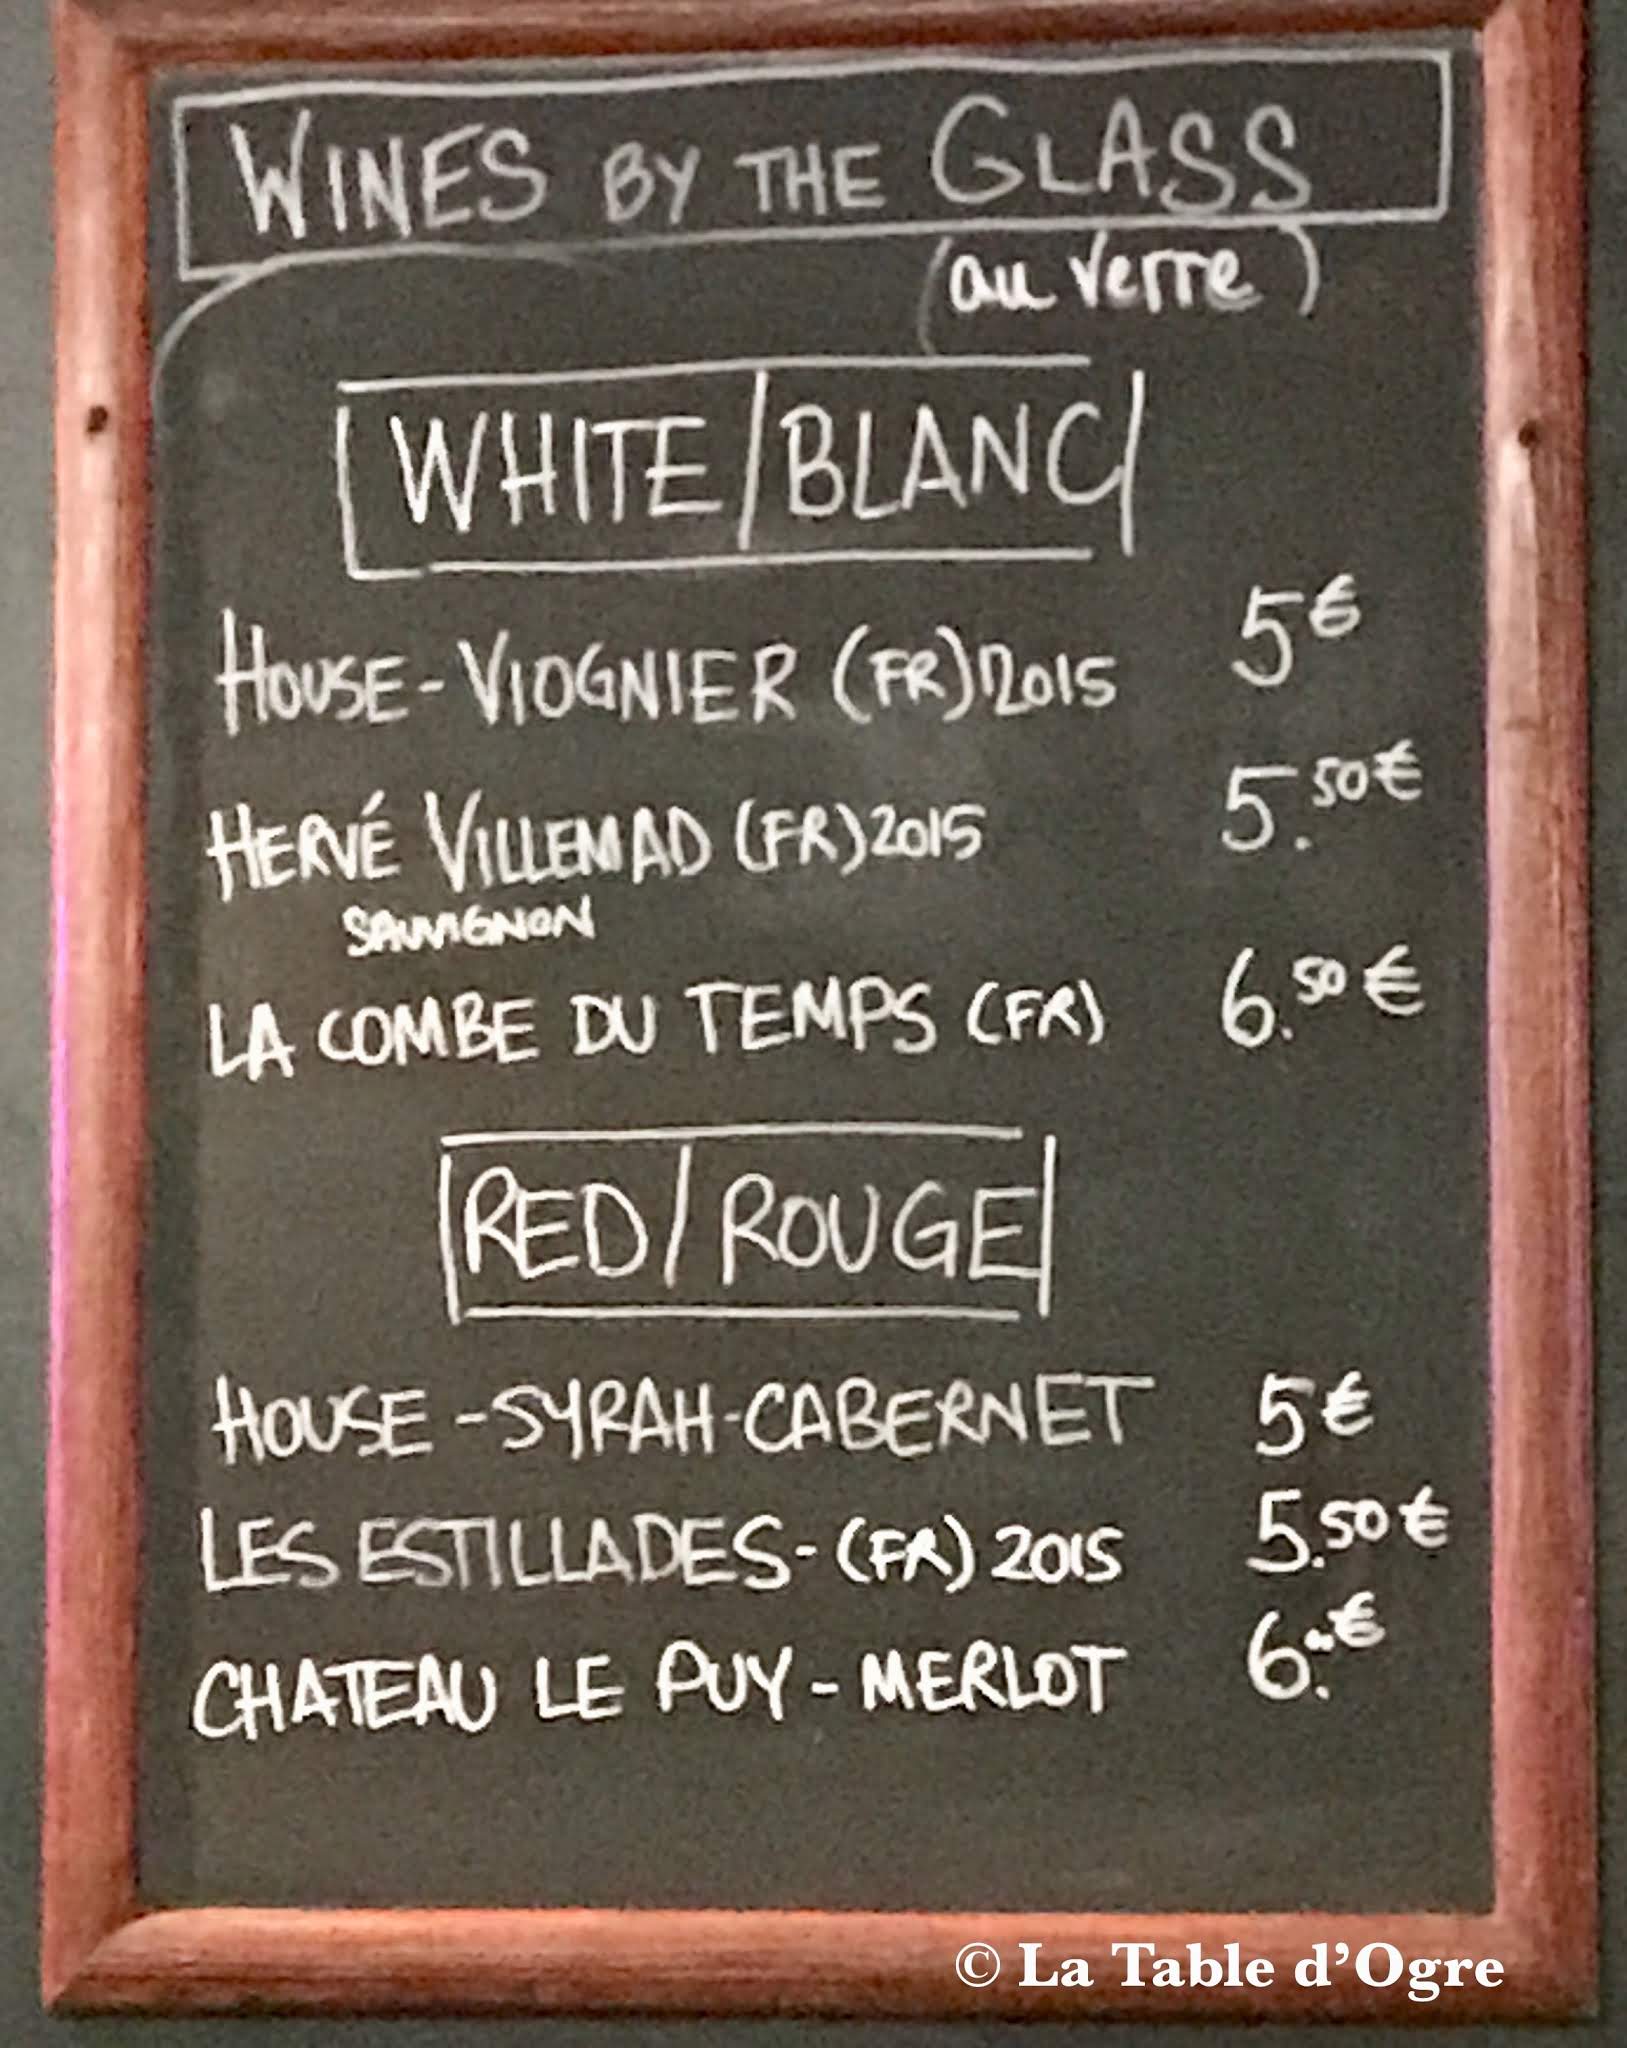 WINES BY THE GLASS
(au verre)
WHITE/BLANC
HOUSE-VIOGNIER (FR) 2015 5€
HERVÉ VILLEMAD (FR) 2015 5.50€
SAUVIGNON
LA COMBE DU TEMPS (FR) 6.50€
RED/ROUGE
HOUSE-SYRAH-CABERNET 5€
LES ESTILLADES-(FR) 2015 5.50€
CHATEAU LE PUY-MERLOT 6.€
© La Table d'Ogre